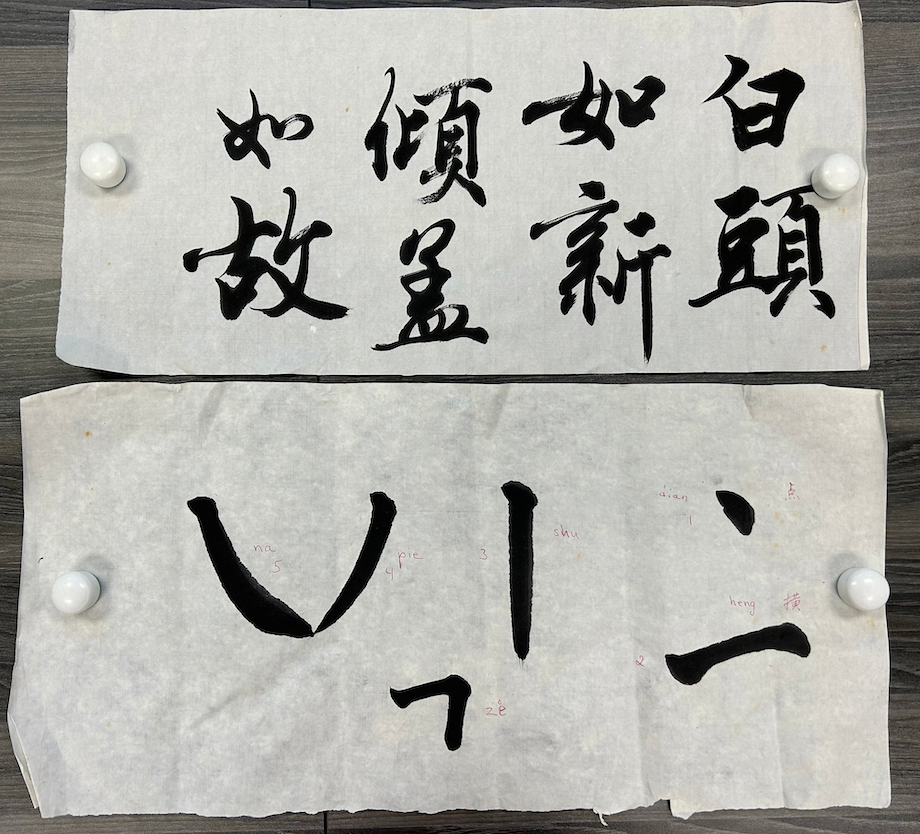 白頭
如新
傾盖
如故
dian 点
1
heng 横
2
shu
3
pie
4
na
5